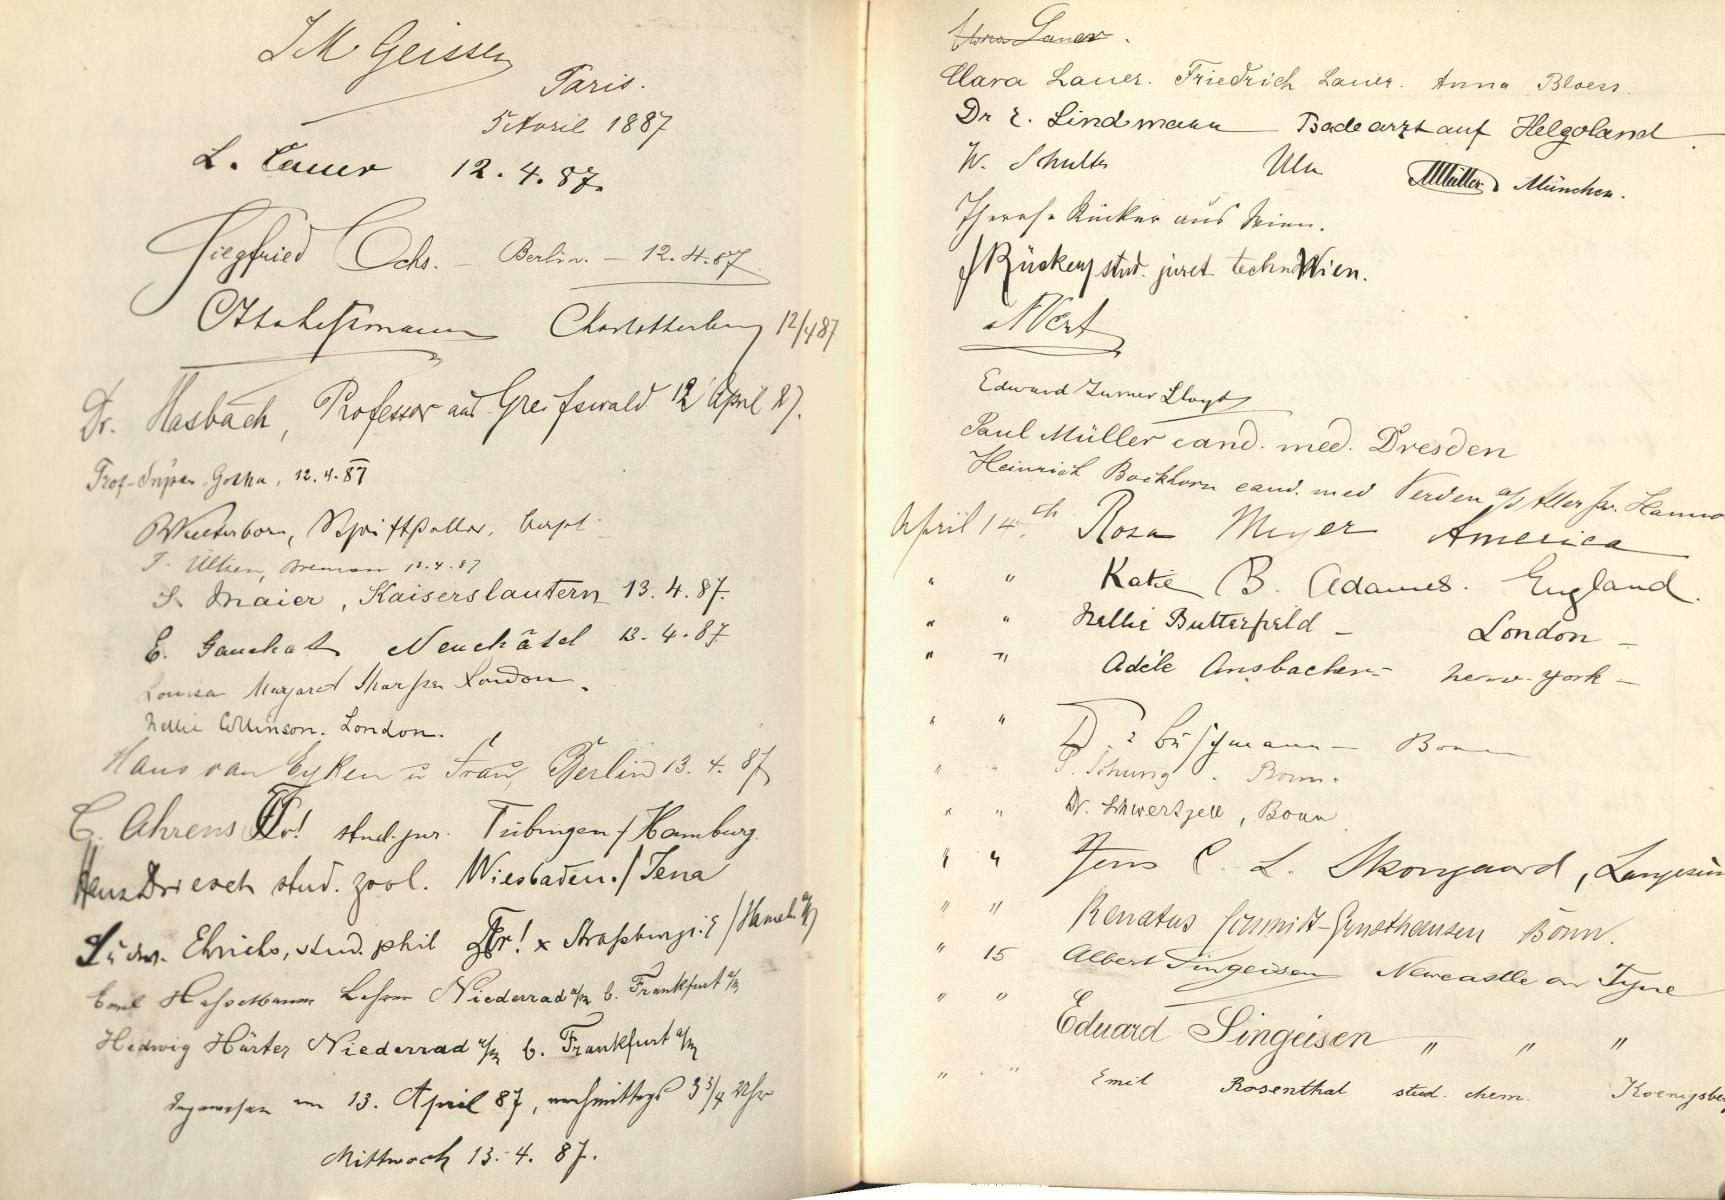 J M Geissen
Paris.
5 Avril 1887
L. Lauer 12.4.87.
Siegfried Ochs. – Berlin. – 12.4.87
Charlottenburg 12/4 87
Dr. Hasbach, Professor aus Greifswald 12 April 87.
Prof. Gotha, 12.4.87
F. Ultzen, Bremen 12.4.87
S. Maier, Kaiserslautern 13.4.87.
E. Gauchat Neuchâtel 13.4.87
Louisa Margaret Sharpe London.
Nellie Collinson. London.
Hans van Eyken u Frau, Berlin 13.4.87
C. Ahrens ! stud. jur. Tübingen / Hamburg.
Hans Driesch stud. zool. Wiesbaden. / Jena
Ehrichs, stud. phil ! x Straßburg i. E /
Emil Hasselmann Lehrer Niederrad a/M b. Frankfurt a/M
Hedwig Härter Niederrad a/M b. Frankfurt a/M
am 13. April 87, nachmittags 3 3/4 Uhr
Mittwoch 13.4.87.
Lauer.
Clara Lauer. Friedrich Lauer. Anna Bloess.
Dr E. Lindemann Badearzt auf Helgoland.
W. Schultes Ulm Müller München.
Therese Rücker aus Wien.
Rücker, stud. techn. Wien.
Edward Turner Lloyd
Paul Müller cand. med. Dresden
Heinrich Bockhorn cand. med Verden a/d Aller Hanno
April 14th. Rosa Meyer America
" " Katie B. Adames. England.
" " Nellie Butterfield – London –
" " Adèle Ansbacher – New-York –
" " Buschmann – Bonn
" " P. Schurig. Bonn.
" " Dr. Schwertzell, Bonn
" " Jens C. L. Skongaard,
" " Renatus Schmidt-Ernsthausen Bonn.
" 15 Albert Singeisen Newcastle on Tyne
" " Eduard Singeisen " " "
" " Emil Rosenthal stud. chem. Koenigsbe